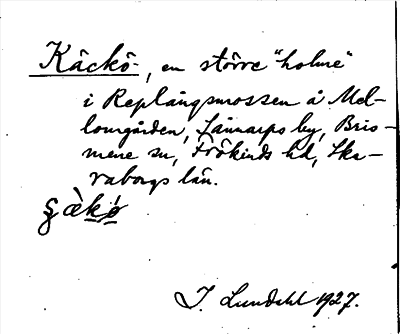 Käckö-, en större "holme"
i Replångsmossen å Mel-
lomgården, Jännarps by, Bris-
mene sn, Frökinds hd, Ska-
raborgs län.
J. Lundahl 1927.